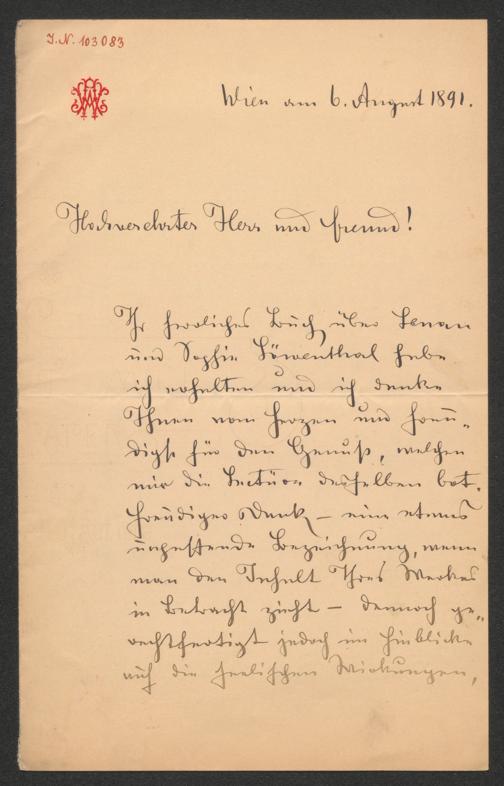 I.N. 103083
Wien am 6. August 1891.
Hochverehrter Herr und Freund!
Ihr herrliches Buch über Lenau
und Sophie Löwenthal habe
ich erhalten und ich danke
Ihnen vom Herzen und freu-
digst für den Genuß, welchen
mir die Lectüre desselben bot.
Freudiger Dank – eine etwas
unpassende Bezeichnung, wenn
man den Inhalt Ihres Werkes
in Betracht zieht – dennoch ge-
rechtfertigt jedoch im Hinblicke
auf die seelischen Wirkungen,